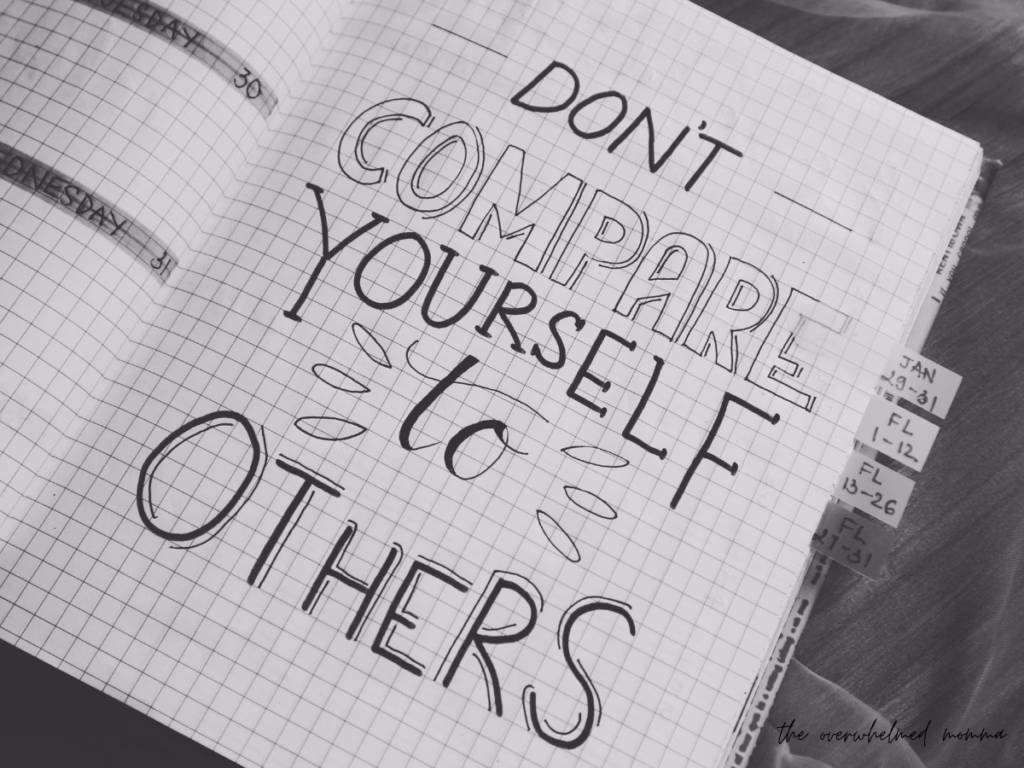 30
31
DON'T
COMPARE
YOURSELF
to
OTHERS
JAN
29-31
FL
1-12
FL
13-26
FL
27-31
the overwhelmed momma